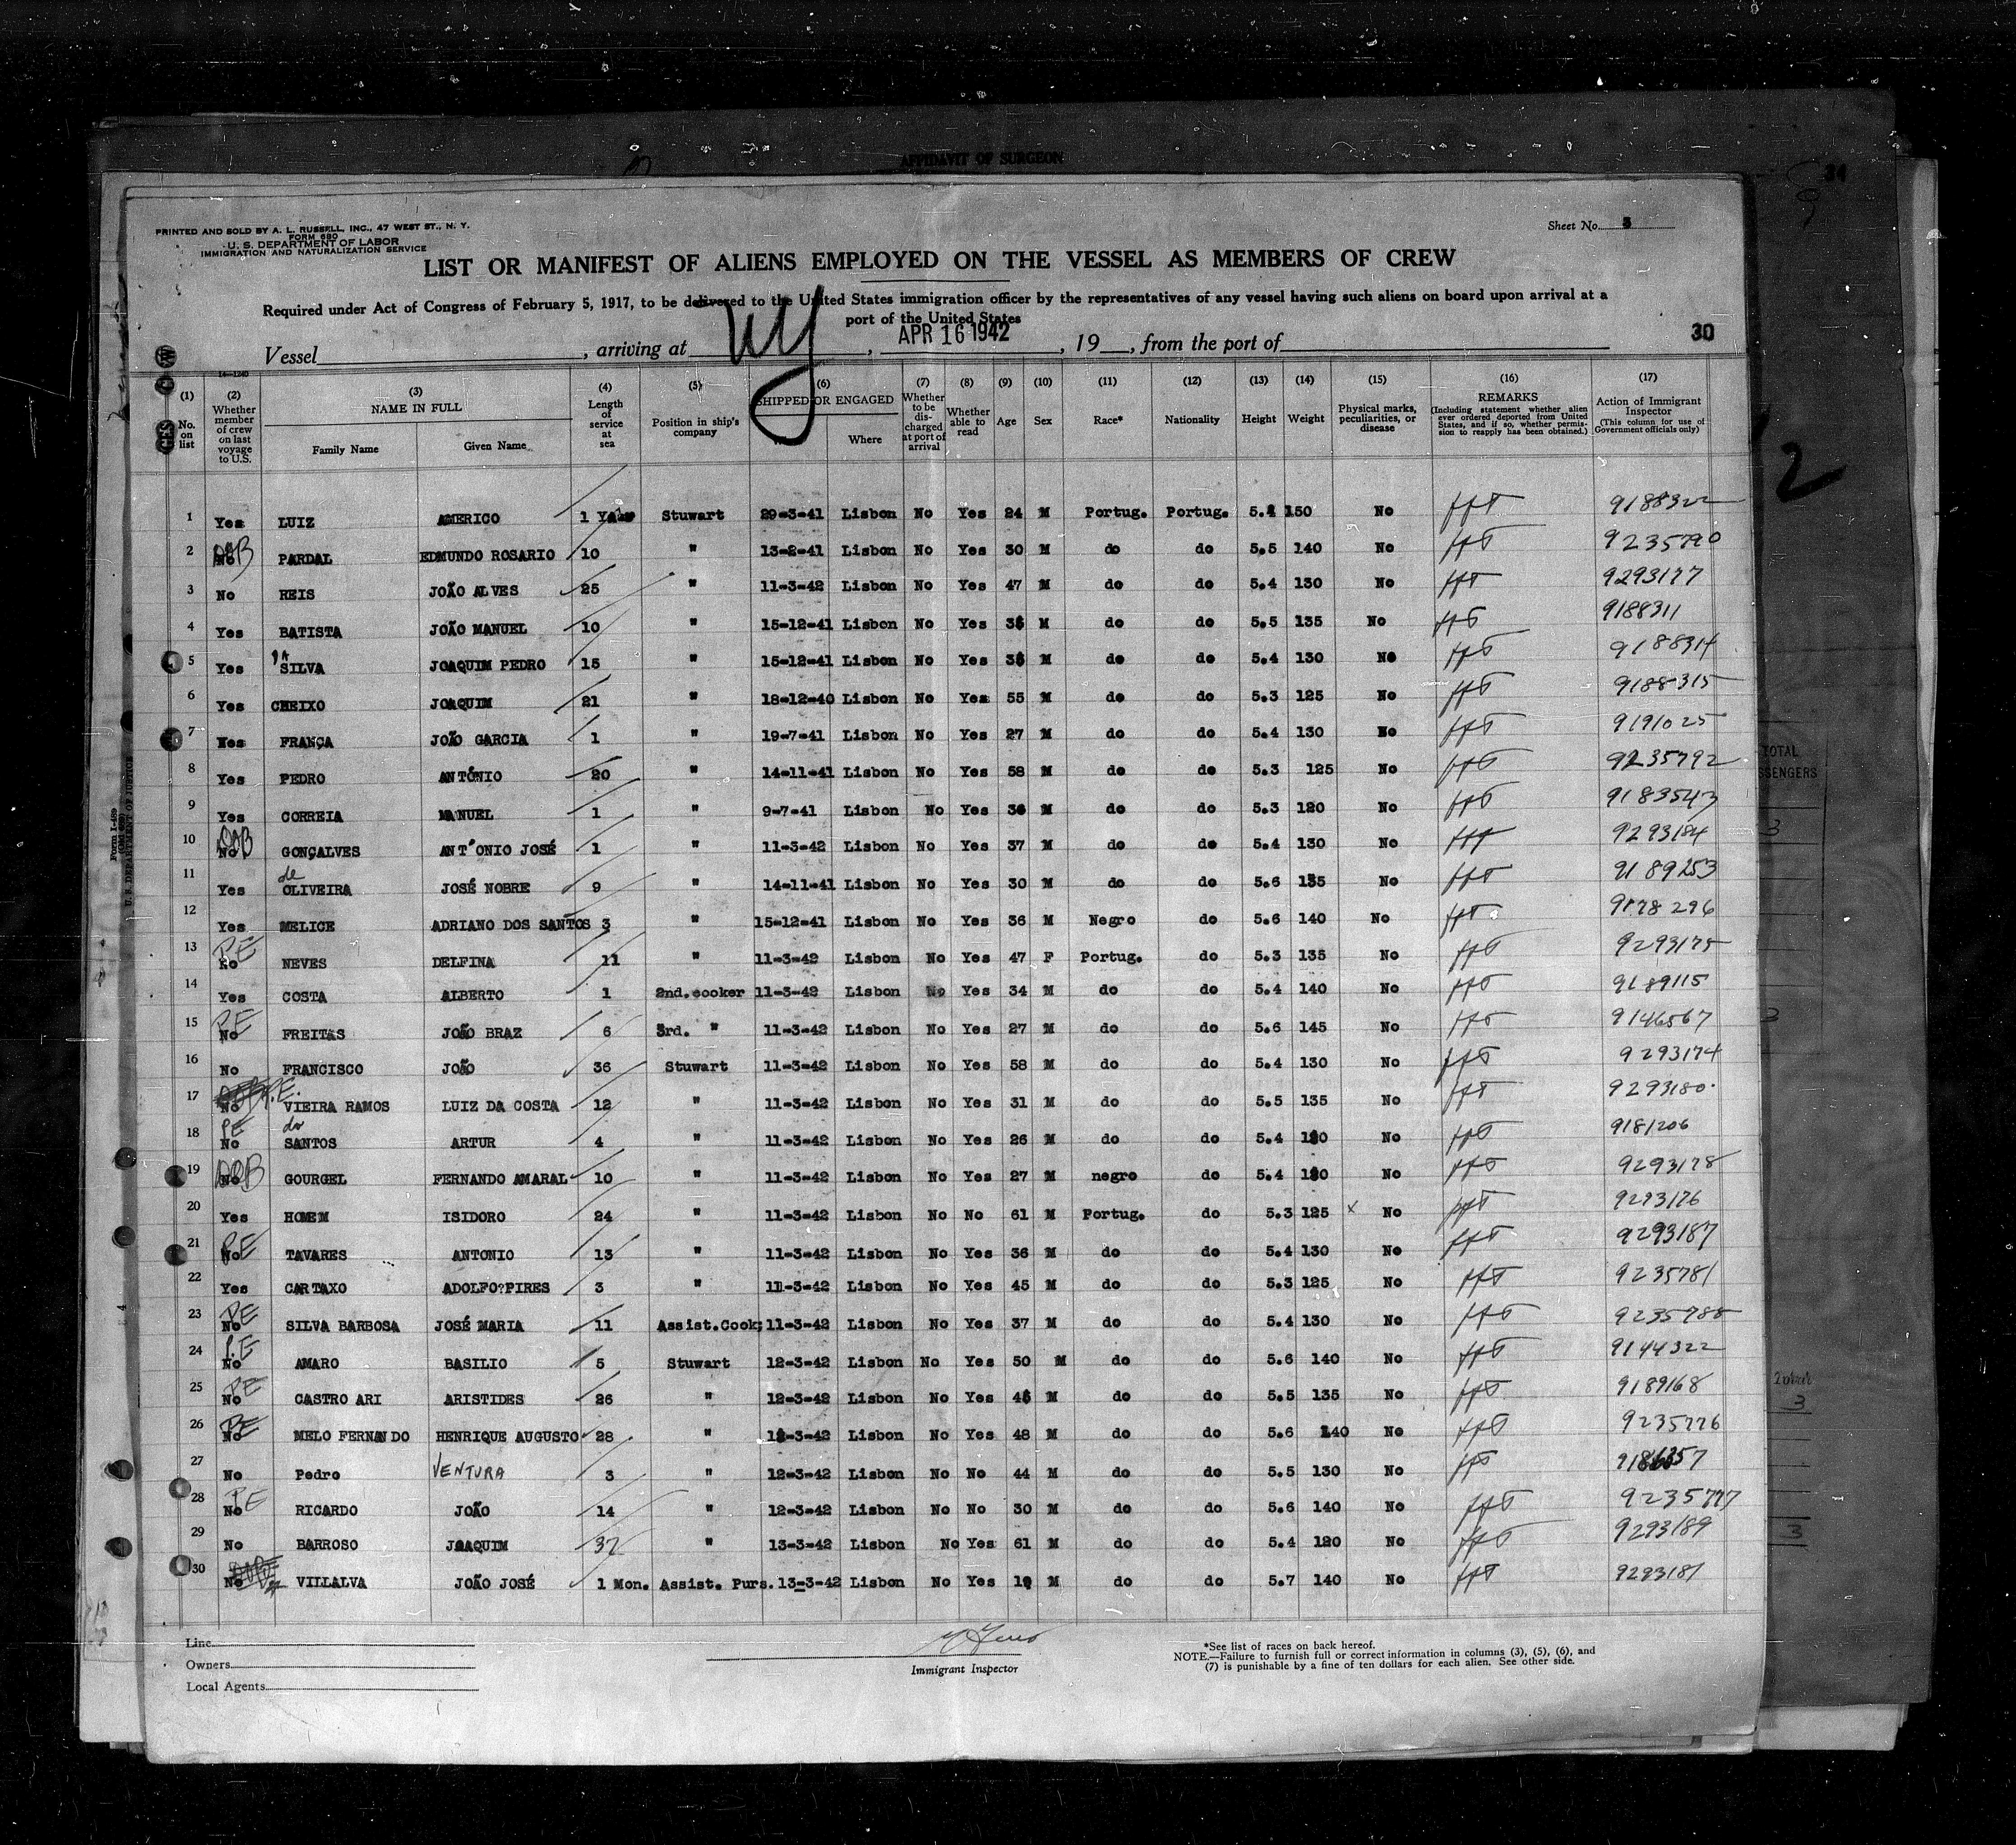 AFFIDAVIT OF SURGEON
PRINTED AND SOLD BY A. L. RUSSELL, INC., 47 WEST ST., N. Y.
FORM 680
U. S. DEPARTMENT OF LABOR
IMMIGRATION AND NATURALIZATION SERVICE
Sheet No. 3
LIST OR MANIFEST OF ALIENS EMPLOYED ON THE VESSEL AS MEMBERS OF CREW
Required under Act of Congress of February 5, 1917, to be delivered to the United States immigration officer by the representatives of any vessel having such aliens on board upon arrival at a
port of the United States
Vessel , arriving at NY , APR 16 1942 , 19 , from the port of 30
(1) No. on list (2) Whether member of crew on last voyage to U.S. (3) NAME IN FULL Family Name Given Name (4) Length of service at sea (5) Position in ship's company (6) SHIPPED OR ENGAGED Where (7) Whether to be discharged at port of arrival (8) Whether able to read (9) Age (10) Sex (11) Race* (12) Nationality (13) Height (14) Weight (15) Physical marks, peculiarities, or disease (16) REMARKS (Including statement whether alien ever ordered deported from United States, and if so, whether permission to reapply has been obtained.) (17) Action of Immigrant Inspector (This column for use of Government officials only)
1 Yes LUIZ AMERICO 1 Stuwart 29-3-41 Lisbon No Yes 24 M Portug. Portug. 5.4 150 No 9188322
2 PARDAL EDMUNDO ROSARIO 10 " 13-2-41 Lisbon No Yes 30 M do do 5.5 140 No 9235790
3 No REIS JOÃO ALVES 25 " 11-3-42 Lisbon No Yes 47 M do do 5.4 130 No 9293177
4 Yes BATISTA JOÃO MANUEL 10 " 15-12-41 Lisbon No Yes M do do 5.5 135 No 9188311
5 Yes SILVA JOAQUIM PEDRO 15 " 15-12-41 Lisbon No Yes M do do 5.4 130 No 9188314
6 Yes CHEIXO JOAQUIM 21 " 18-12-40 Lisbon No Yes 55 M do do 5.3 125 No 9188315
7 Yes FRANÇA JOÃO GARCIA 1 " 19-7-41 Lisbon No Yes 27 M do do 5.4 130 No 9191025
8 Yes PEDRO ANTÓNIO 20 " 14-11-41 Lisbon No Yes 58 M do do 5.3 125 No 9235792
9 Yes CORREIA MANUEL 1 " 9-7-41 Lisbon No Yes 36 M do do 5.3 120 No 9183543
10 No GONÇALVES ANT´ONIO JOSÉ 1 " 11-3-42 Lisbon No Yes 37 M do do 5.4 130 No 9293184
11 Yes de OLIVEIRA JOSÉ NOBRE 9 " 14-11-41 Lisbon No Yes 30 M do do 5.6 135 No 9189253
12 Yes MELICE ADRIANO DOS SANTOS 3 " 15-12-41 Lisbon No Yes 36 M Negro do 5.6 140 No 9178296
13 PE No NEVES DELFINA 11 " 11-3-42 Lisbon No Yes 47 F Portug. do 5.3 135 No 9293175
14 Yes COSTA ALBERTO 1 2nd. cooker 11-3-42 Lisbon No Yes 34 M do do 5.4 140 No 9189115
15 PE No FREITAS JOÃO BRAZ 6 3rd. " 11-3-42 Lisbon No Yes 27 M do do 5.6 145 No 9146567
16 No FRANCISCO JOÃO 36 Stuwart 11-3-42 Lisbon No Yes 58 M do do 5.4 130 No 9293174
17 P.E. No VIEIRA RAMOS LUIZ DA COSTA 12 " 11-3-42 Lisbon No Yes 31 M do do 5.5 135 No 9293180
18 PE No SANTOS ARTUR 4 " 11-3-42 Lisbon No Yes 26 M do do 5.4 No 9181206
19 No GOURGEL FERNANDO AMARAL 10 " 11-3-42 Lisbon No Yes 27 M negro do 5.4 No 9293178
20 Yes HOMEM ISIDORO 24 " 11-3-42 Lisbon No No 61 M Portug. do 5.3 125 x No 9293176
21 PE No TAVARES ANTONIO 13 " 11-3-42 Lisbon No Yes 36 M do do 5.4 130 No 9293187
22 Yes CARTAXO ADOLFO?PIRES 3 " 11-3-42 Lisbon No Yes 45 M do do 5.3 125 No 9235781
23 PE No SILVA BARBOSA JOSÉ MARIA 11 Assist.Cook 11-3-42 Lisbon No Yes 37 M do do 5.4 130 No 9235788
24 P.E No AMARO BASILIO 5 Stuwart 12-3-42 Lisbon No Yes 50 M do do 5.6 140 No 9144322
25 PE No CASTRO ARI ARISTIDES 26 " 12-3-42 Lisbon No Yes M do do 5.5 135 No 9189168
26 PE No MELO FERNANDO HENRIQUE AUGUSTO 28 " 12-3-42 Lisbon No Yes 48 M do do 5.6 140 No 9235776
27 No Pedro VENTURA 3 " 12-3-42 Lisbon No No 44 M do do 5.5 130 No
28 PE No RICARDO JOÃO 14 " 12-3-42 Lisbon No No 30 M do do 5.6 140 No 9235777
29 No BARROSO JOAQUIM 37 " 13-3-42 Lisbon No Yes 61 M do do 5.4 120 No 9293189
30 No VILLALVA JOÃO JOSÉ 1 Mon. Assist. Purs. 13-3-42 Lisbon No Yes 19 M do do 5.7 140 No 9293181
Line
Owners
Local Agents
Immigrant Inspector
*See list of races on back hereof.
NOTE.—Failure to furnish full or correct information in columns (3), (5), (6), and
(7) is punishable by a fine of ten dollars for each alien. See other side.
Form I-489
U. S. DEPARTMENT OF JUSTICE
2
TOTAL
3
3
3
3